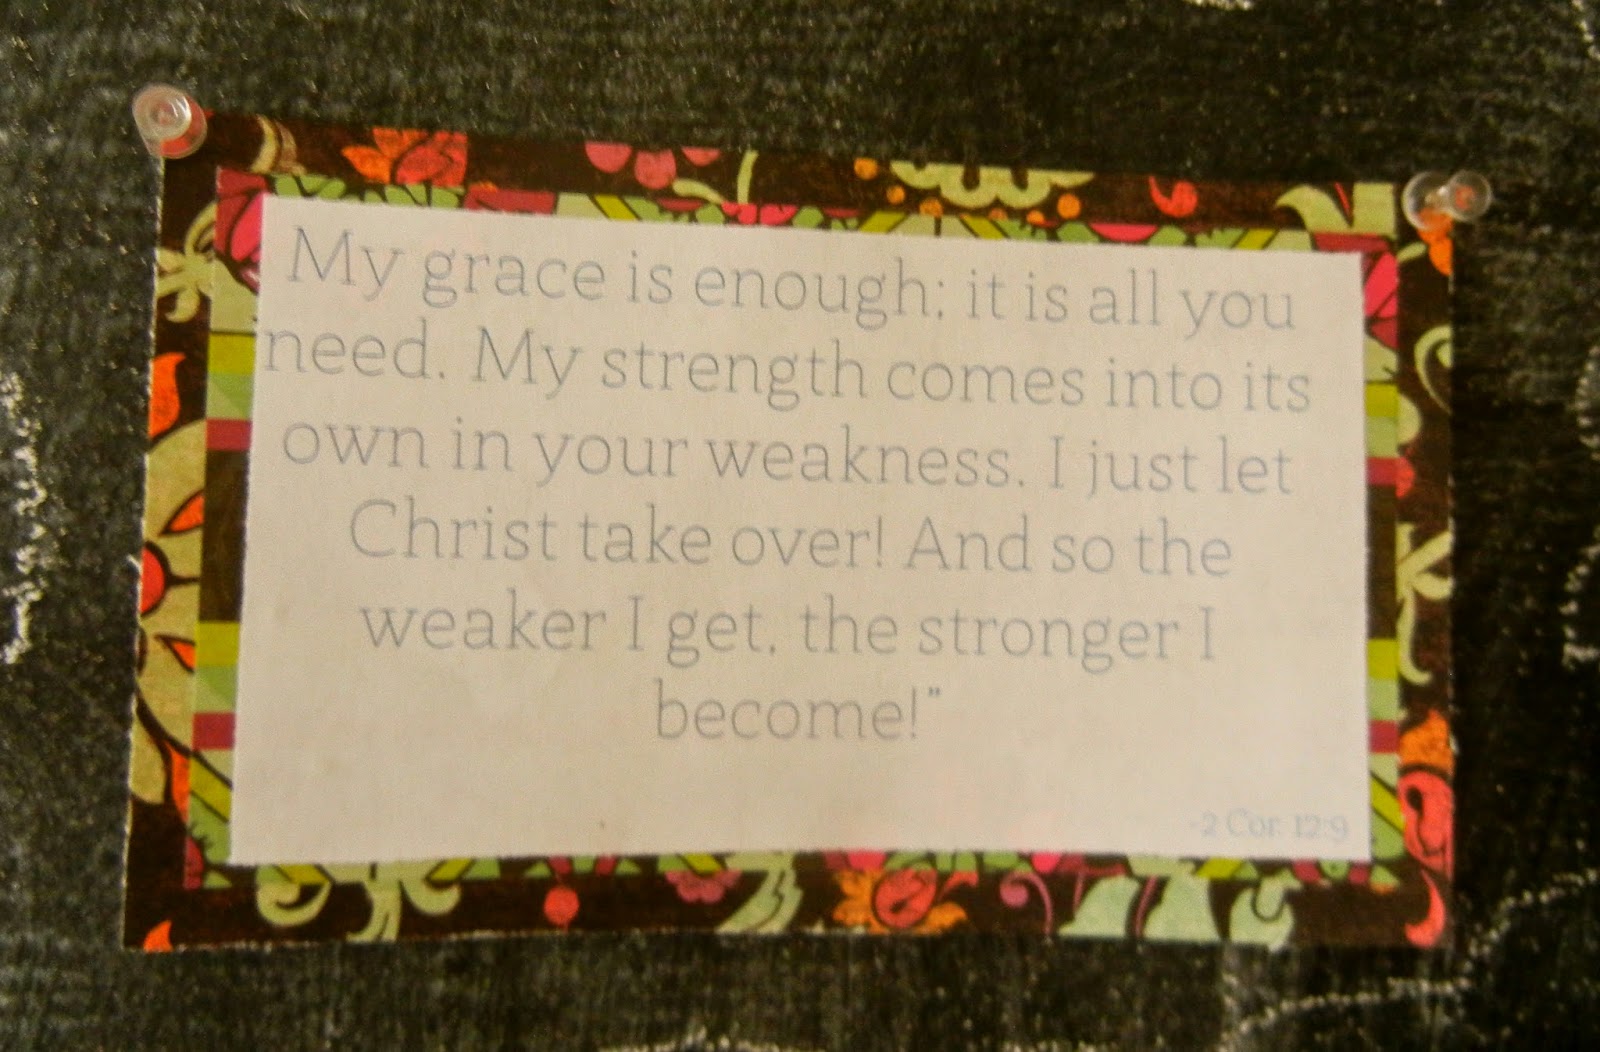 My grace is enough; it is all you
need. My strength comes into its
own in your weakness. I just let
Christ take over! And so the
weaker I get, the stronger I
become!"
-2 Cor. 12:9